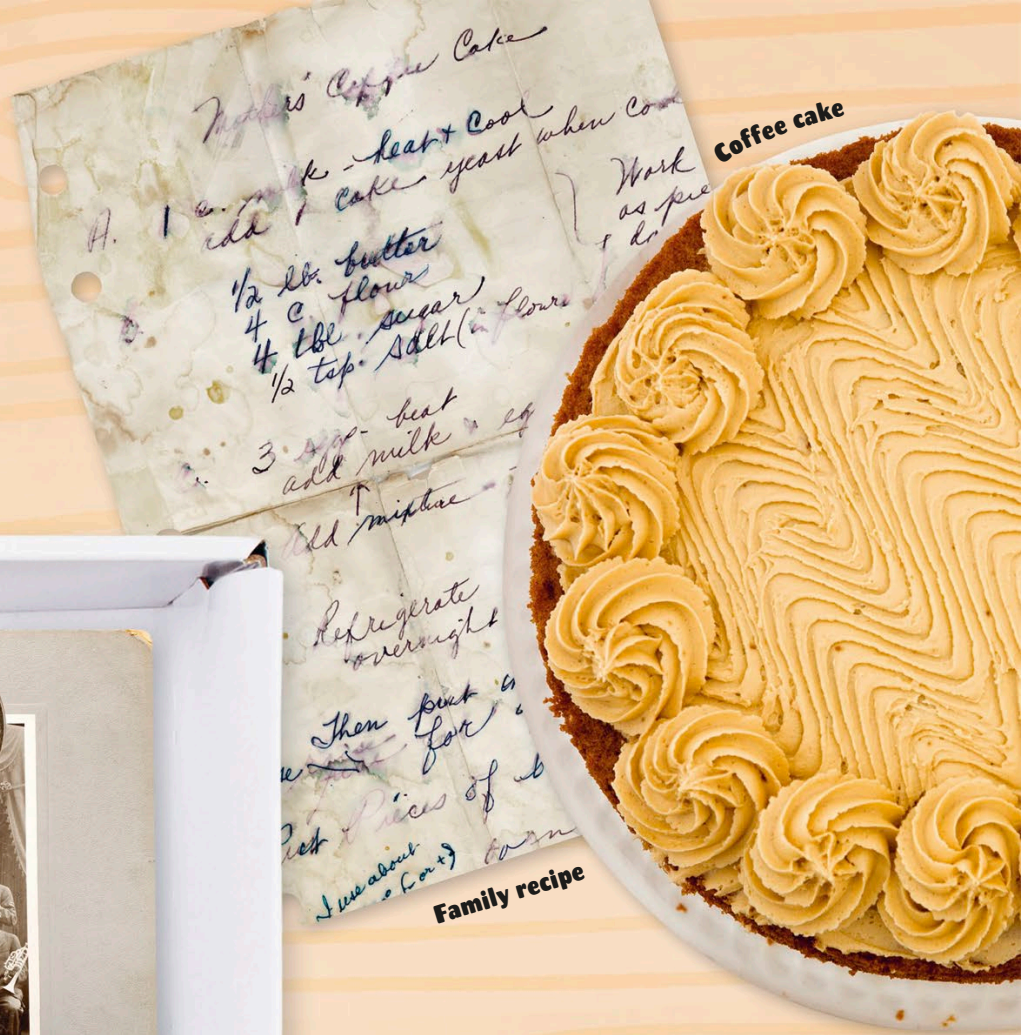 Mother's Coffee Cake
A. 1 c. milk - heat + cool
add 1 cake yeast when
Work
as
1/2 lb. butter
4 c flour
4 tbl. sugar
1/2 tsp. salt (in flour
3 eggs - beat
add milk
add mixture
Refrigerate
overnight
Then put
for
Pieces of
I use about
Coffee cake
Family recipe